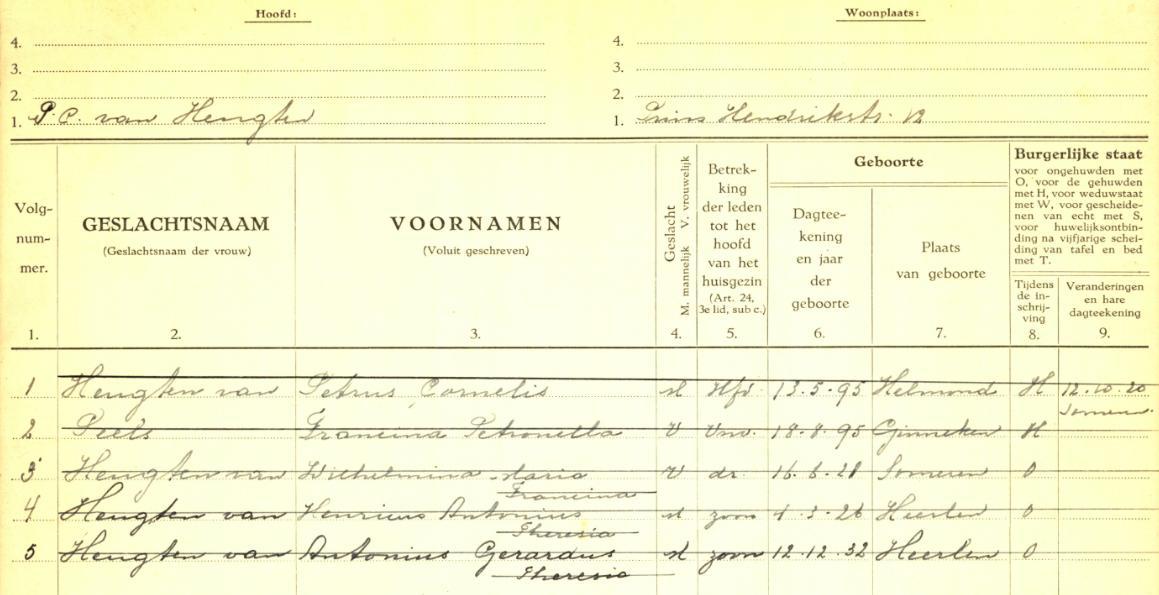 Hoofd: Woonplaats:
4. 4.
3. 3.
2. 2.
1. P. C. van Hengten 1. Prins Hendrikstr. 12
Volg-
num-
mer.
1.
GESLACHTSNAAM
(Geslachtsnaam der vrouw)
2.
VOORNAMEN
(Voluit geschreven)
3.
Geslacht
M. mannelijk V. vrouwelijk
4.
Betrek-
king
der leden
tot het
hoofd
van het
huisgezin
(Art. 24,
3e lid, sub c.)
5.
Geboorte
Dagtee-
kening
en jaar
der
geboorte
6.
Plaats
van geboorte
7.
Burgerlijke staat
voor ongehuwden met
O, voor de gehuwden
met H, voor weduwstaat
met W, voor gescheide-
nen van echt met S,
voor huwelijksontbin-
ding na vijfjarige schei-
ding van tafel en bed
met T.
Tijdens
de in-
schrij-
ving
8.
Veranderingen
en hare
dagteekening
9.
1 Hengten van Petrus Cornelis M Hfd. 13.5.95 Helmond H 12.10.20
Someren
2 Peels Francina Petronella V Vrw. 18.8.95 Ginneken H
3 Hengten van Wilhelmina Maria V dr. 16.6.21 Someren O
Francina
4 Hengten van Henricus Antonius M zoon 1.3.26 Heerlen O
Theresia
5 Hengten van Antonius Gerardus M zoon 12.12.32 Heerlen O
Theresia